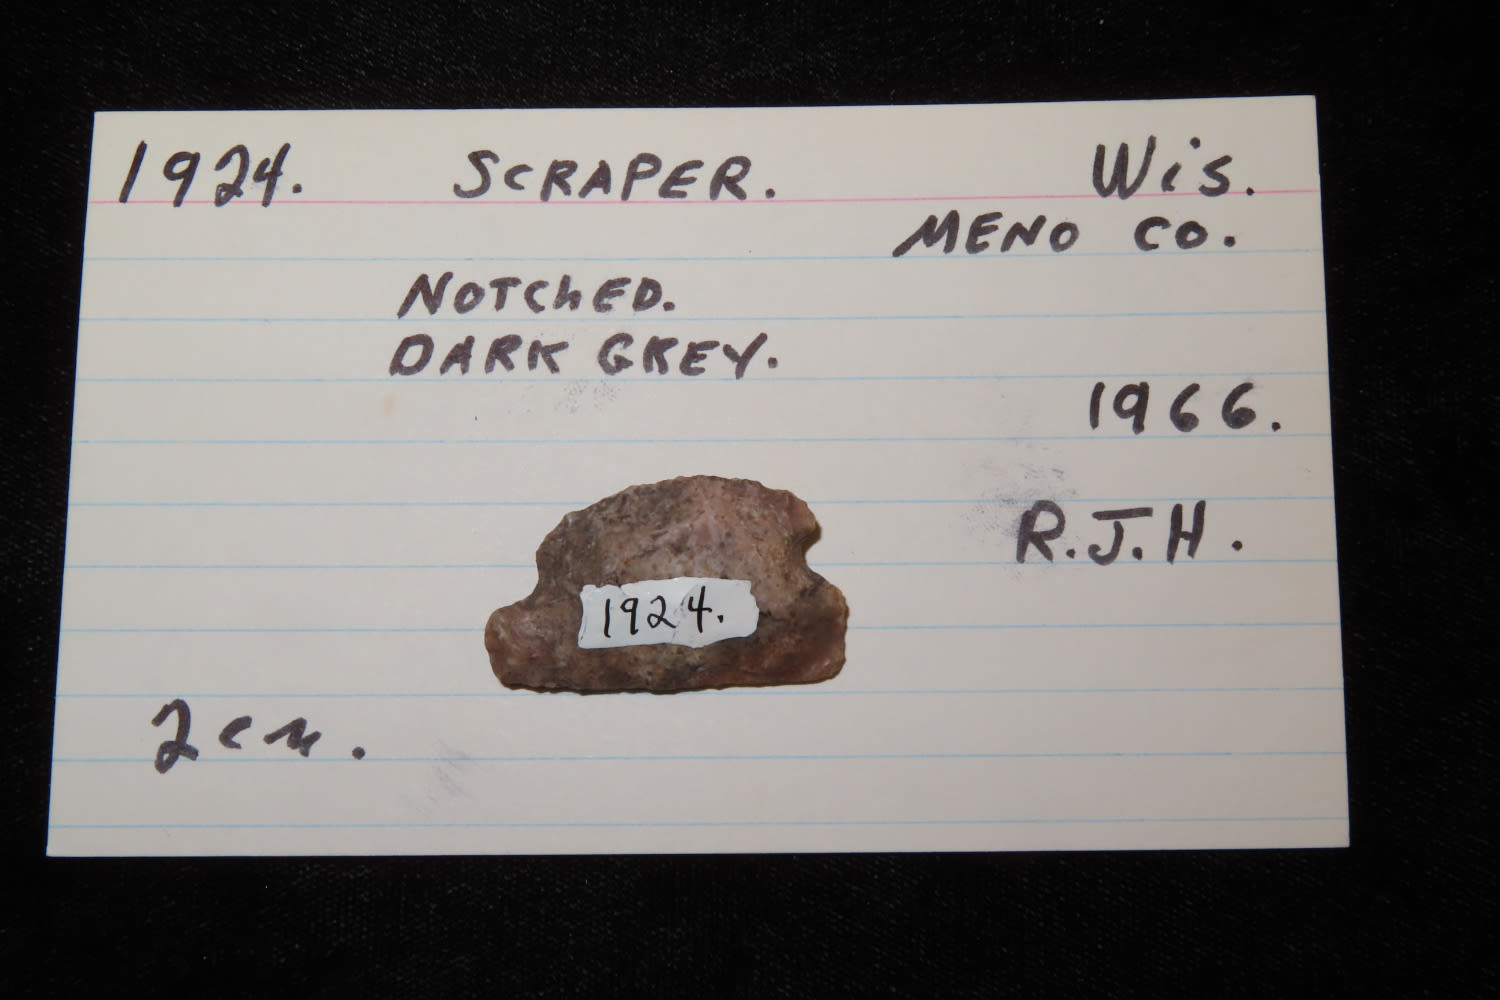 1924. SCRAPER. Wis.
MENO CO.
NOTChED.
DARK GREY.
1966.
R.J.H.
1924.
2cm.